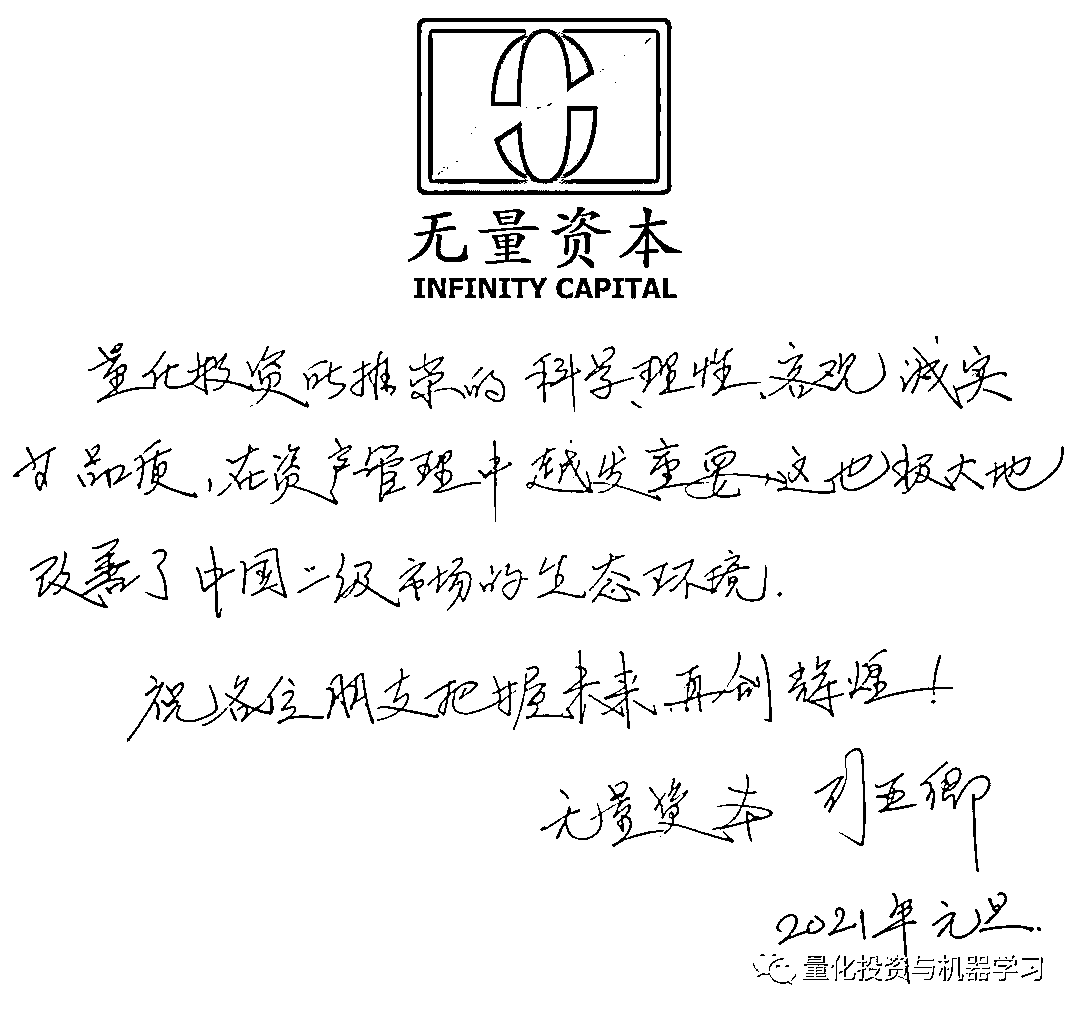 无量资本
INFINITY CAPITAL
量化投资所推崇的科学、理性、客观、诚实
等品质,在资产管理中越发重要,这也极大地
改善了中国二级市场的生态环境.
祝各位朋友把握未来,再创辉煌!
无量资本 刘玉卿
2021年元旦.
量化投资与机器学习